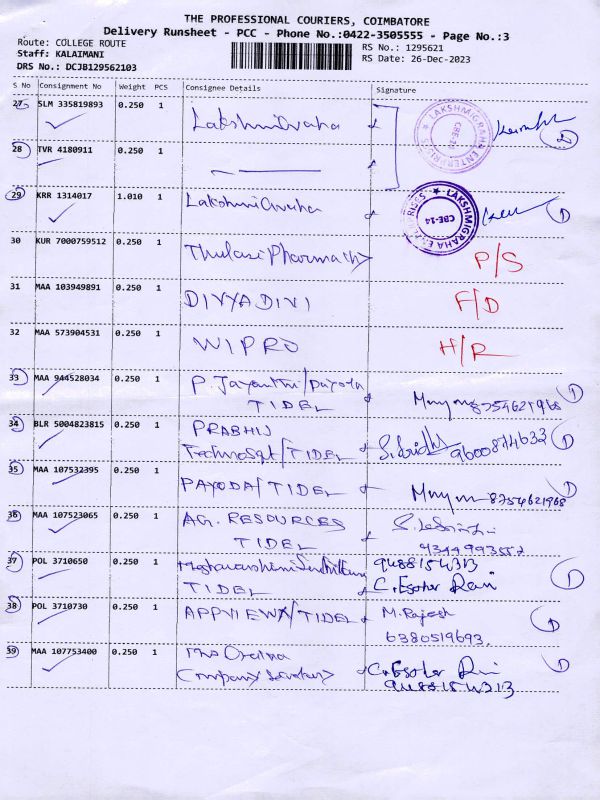 THE PROFESSIONAL COURIERS, COIMBATORE
Delivery Runsheet - PCC - Phone No.:0422-3505555 - Page No.:3
Route: COLLEGE ROUTE
Staff: KALAIMANI
DRS No.: DCJB129562103
RS No.: 1295621
RS Date: 26-Dec-2023
S No Consignment No Weight PCS Consignee Details Signature
27 SLM 335819893 0.250 1
LAKSHMIGRAHA ENTERPRISES CBE-14
28 TVR 4180911 0.250 1
29 KRR 1314017 1.010 1
LAKSHMIGRAHA ENTERPRISES CBE-14
30 KUR 7000759512 0.250 1 Thulasi Pharmacy P/S
31 MAA 103949891 0.250 1 DIVYA DIVI F/D
32 MAA 573904531 0.250 1 WIPRO H/R
33 MAA 944528034 0.250 1 P. Jayanthi/Payoda
TIDEL 8754621968
34 BLR 5004823815 0.250 1 PRABHU
TIDEL 9600874633
35 MAA 107532395 0.250 1
PAYODA/TIDEL 8754621968
36 MAA 107523065 0.250 1 AG. RESOURCES
TIDEL
37 POL 3710650 0.250 1 9488154313
TIDEL C. Esther Rani
38 POL 3710730 0.250 1 APPVIEWX/TIDEL M. Rajesh
6380519693.
39 MAA 107753400 0.250 1 The
Company Secretary C. Esther Rani
9488154313